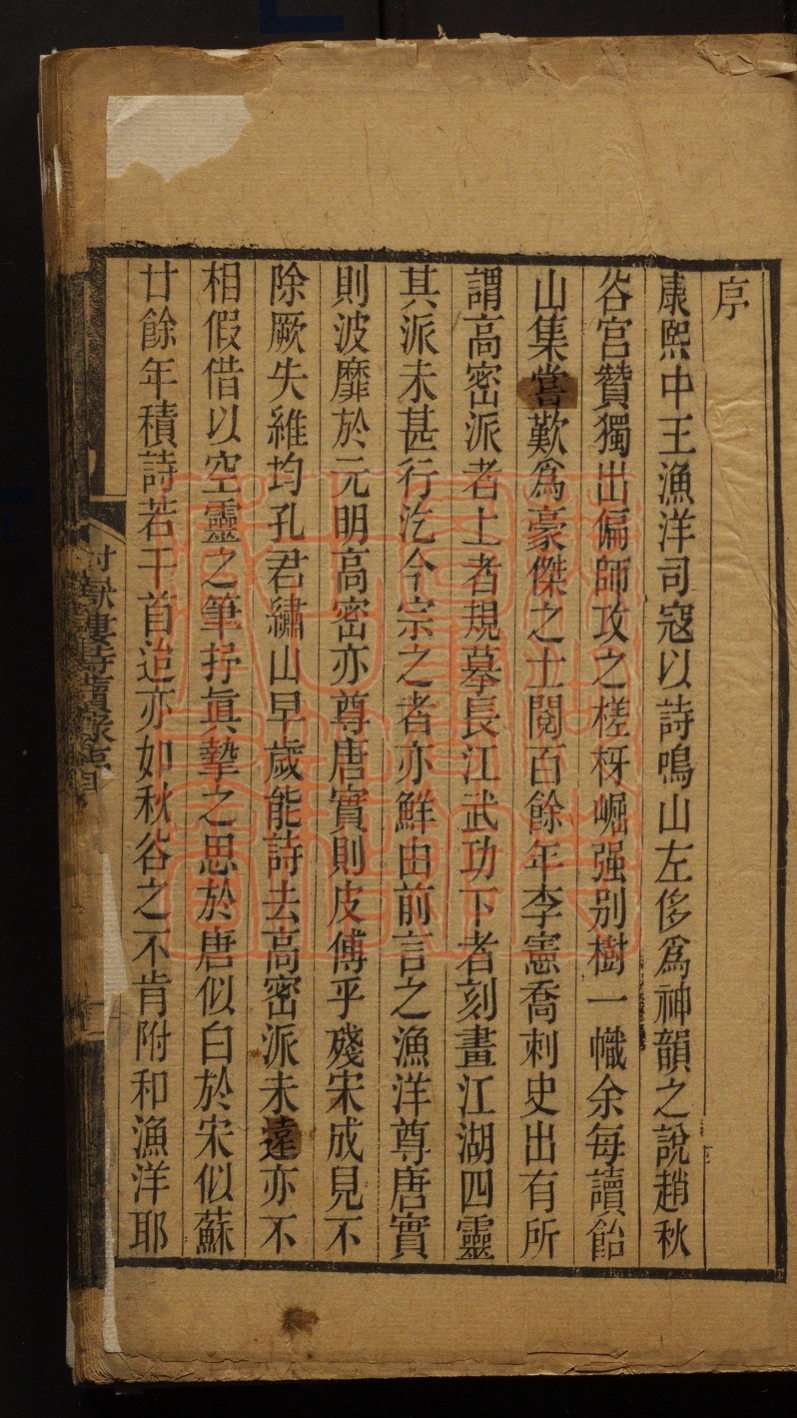 序
康熙中王漁洋司寇以詩鳴山左侈爲神韻之說趙秋
谷宮贊獨出偏師攻之槎枒崛强别樹一幟余每讀飴
山集嘗歎爲豪傑之士閱百餘年李憲喬刺史出有所
謂高密派者上者規摹長江武功下者刻畫江湖四靈
其派未甚行汔今宗之者亦鮮由前言之漁洋尊唐實
則波靡於元明高密亦尊唐實則皮傅乎殘宋成見不
除厥失維均孔君繡山早歲能詩去高密派未遠亦不
相假借以空靈之筆抒眞摯之思於唐似白於宋似蘇
廿餘年積詩若干首迨亦如秋谷之不肯附和漁洋耶